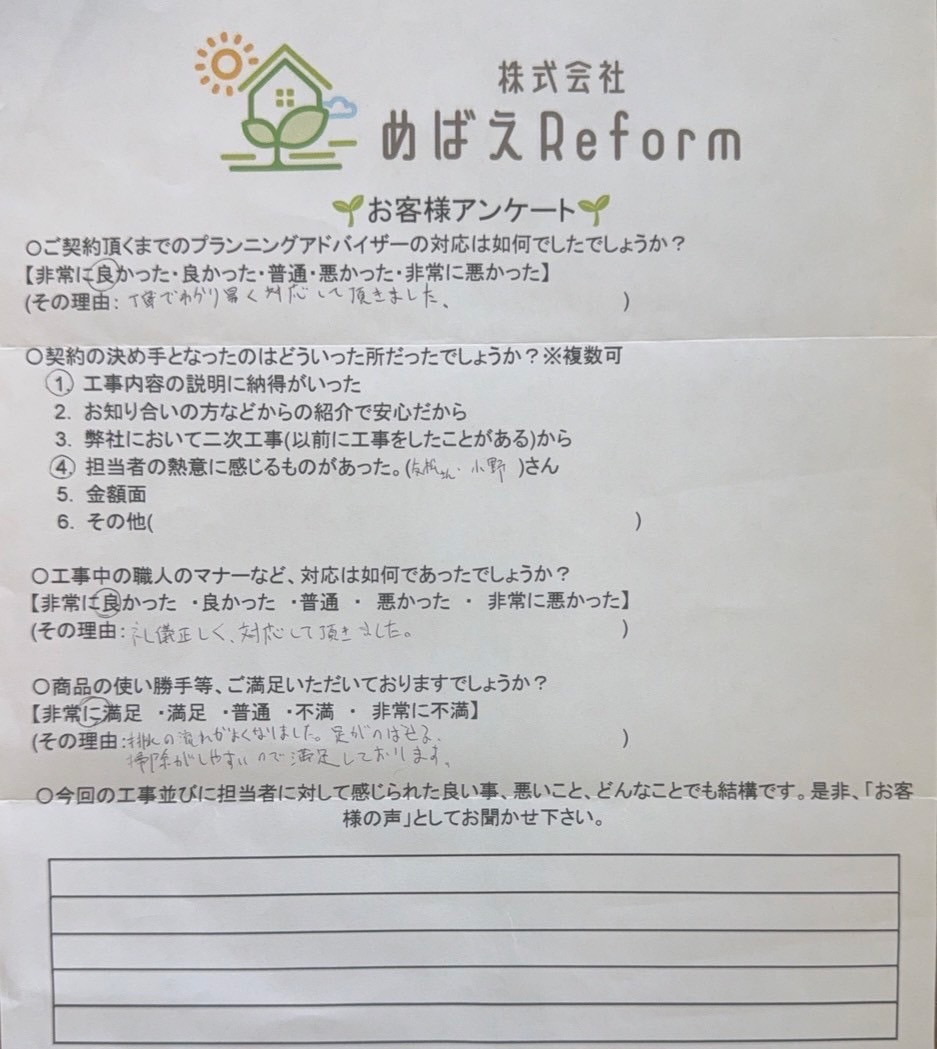 株式会社
めばえReform
お客様アンケート
○ご契約頂くまでのプランニングアドバイザーの対応は如何でしたでしょうか？
【非常に良かった・良かった・普通・悪かった・非常に悪かった】
(その理由: 丁寧でわかり易く対応して頂きました、 )
○契約の決め手となったのはどういった所だったでしょうか？※複数可
1. 工事内容の説明に納得がいった
2. お知り合いの方などからの紹介で安心だから
3. 弊社において二次工事(以前に工事をしたことがある)から
4. 担当者の熱意に感じるものがあった。( さん・小野 )さん
5. 金額面
6. その他( )
○工事中の職人のマナーなど、対応は如何であったでしょうか？
【非常に良かった ・良かった ・普通 ・ 悪かった ・ 非常に悪かった】
(その理由: 礼儀正しく、対応して頂きました。 )
○商品の使い勝手等、ご満足いただいておりますでしょうか？
【非常に満足 ・満足 ・普通 ・不満 ・ 非常に不満】
(その理由: 排水の流れがよくなりました。足がのばせる、 )
掃除がしやすいので満足しております。
○今回の工事並びに担当者に対して感じられた良い事、悪いこと、どんなことでも結構です。是非、「お客
様の声」としてお聞かせ下さい。